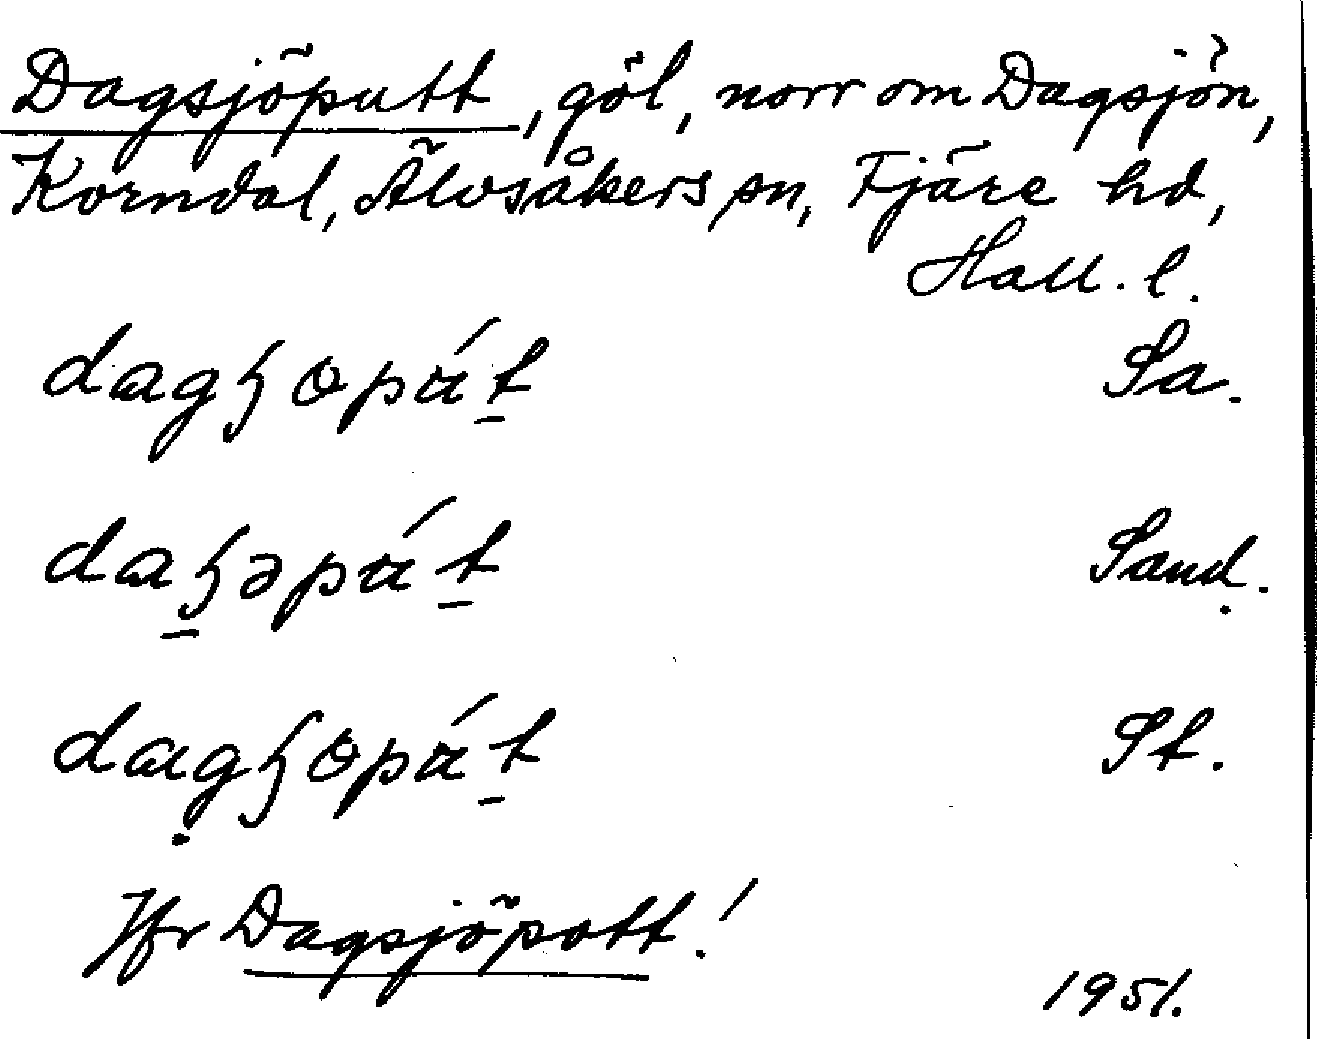 Dagsjöputt, göl, norr om Dagsjön,
Korndal, Älvsåkers sn, Fjäre hd,
Hall. l.
Sa.
Sand.
St.
Jfr Dagsjöpott!
1951.